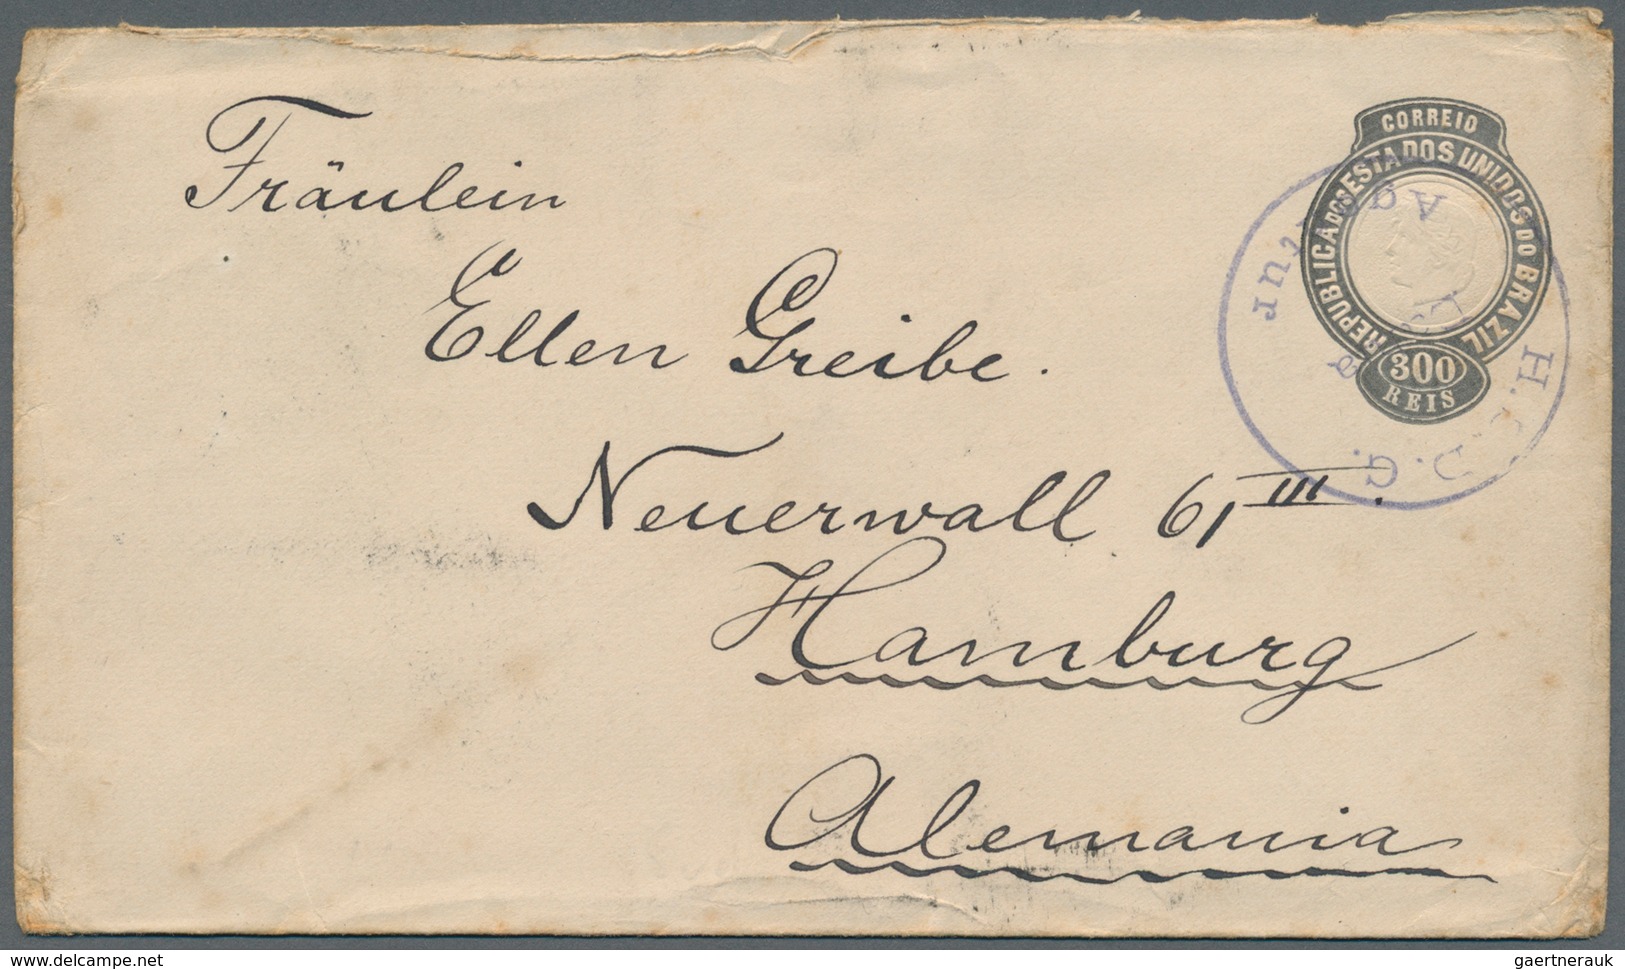 Fräulein
Ellen Greibe.
Neuerwall 61 III.
Hamburg
Alemania
CORREIO
REPUBLICA DOS ESTADOS UNIDOS DO BRAZIL
300
REIS
delcampe.net
gaertnerauk